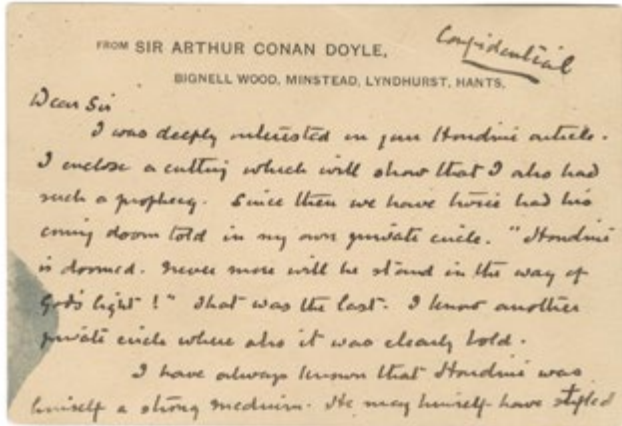 Confidential
FROM SIR ARTHUR CONAN DOYLE,
BIGNELL WOOD, MINSTEAD, LYNDHURST, HANTS.
Dear Sir
I was deeply interested in your Houdini article.
I enclose a cutting which will show that I also had
such a prophecy. Since then we have twice had his
coming doom told in my own private circle. "Houdini
is doomed. Never more will he stand in the way of
God's light!" That was the last. I know another
private circle where also it was clearly told.
I have always known that Houdini was
himself a strong medium. He may himself have styled